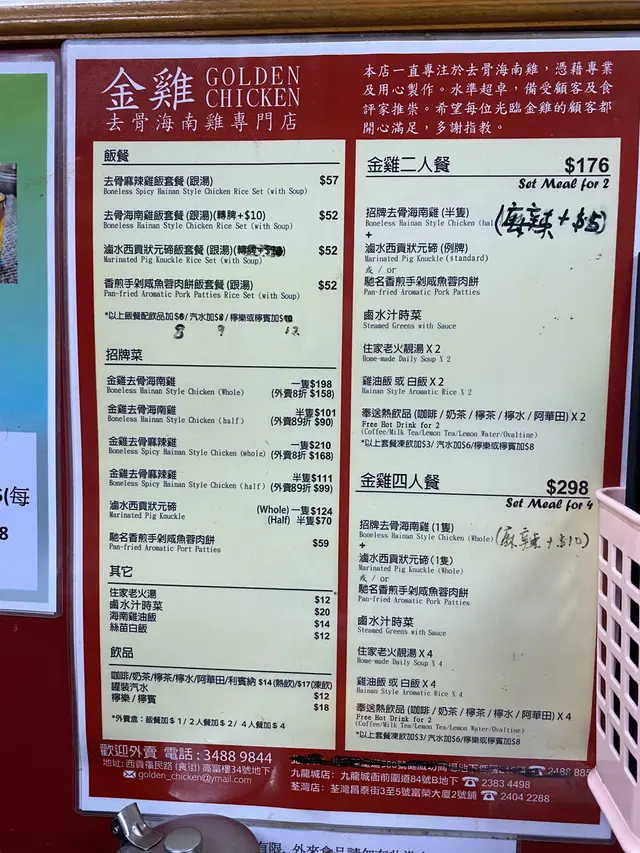 金雞 GOLDEN CHICKEN
去骨海南雞專門店
本店一直專注於去骨海南雞，憑藉專業
及用心製作。水準超卓，備受顧客及食
評家推崇。希望每位光臨金雞的顧客都
開心滿足，多謝指教。
飯餐
去骨麻辣雞飯套餐(跟湯) $57
Boneless Spicy Hainan Style Chicken Rice Set (with Soup)
去骨海南雞飯套餐(跟湯)(轉髀+$10) $52
Boneless Hainan Style Chicken Rice Set (with Soup)
滷水西貢狀元蹄飯套餐(跟湯) $52
Marinated Pig Knuckle Rice Set (with Soup)
香煎手剁咸魚蓉肉餅飯套餐(跟湯) $52
Pan-fried Aromatic Pork Patties Rice Set (with Soup)
*以上飯餐配飲品加$ / 汽水加$ / 檸樂或檸賓加$
8 9 12
招牌菜
金雞去骨海南雞 一隻$198
Boneless Hainan Style Chicken (Whole) (外賣8折 $158)
金雞去骨海南雞 半隻$101
Boneless Hainan Style Chicken (half) (外賣89折 $90)
金雞去骨麻辣雞 一隻$210
Boneless Spicy Hainan Style Chicken (whole) (外賣8折 $168)
金雞去骨麻辣雞 半隻$111
Boneless Spicy Hainan Style Chicken (half) (外賣89折 $99)
滷水西貢狀元蹄 (Whole) 一隻$124
Marinated Pig Knuckle (Half) 半隻$70
馳名香煎手剁咸魚蓉肉餅 $59
Pan-fried Aromatic Port Patties
其它
住家老火湯 $12
鹵水汁時菜 $20
海南雞油飯 $14
絲苗白飯 $12
飲品
咖啡/奶茶/檸茶/檸水/阿華田/利賓納 $14(熱飲)/$17(凍飲)
罐裝汽水 $12
檸樂 / 檸賓 $18
*外賣盒：飯餐加$1/ 2人餐加$2/ 4人餐加$4
金雞二人餐 $176
Set Meal for 2
招牌去骨海南雞 (半隻) (麻辣+$5)
Boneless Hainan Style Chicken (hal
+
滷水西貢狀元蹄 (例牌)
Marinated Pig Knuckle(standard)
或 / or
馳名香煎手剁咸魚蓉肉餅
Pan-fried Aromatic Pork Patties
鹵水汁時菜
Steamed Greens with Sauce
住家老火靚湯 X 2
Home-made Daily Soup X 2
雞油飯 或 白飯 X 2
Hainan Style Aromatic Rice X 2
奉送熱飲品 (咖啡 / 奶茶 / 檸茶 / 檸水 / 阿華田) X 2
Free Hot Drink for 2
(Coffee/Milk Tea/Lemon Tea/Lemon Water/Ovaltine)
*以上套餐凍飲加$3/ 汽水加$6/檸樂或檸賓加$8
金雞四人餐 $298
Set Meal for 4
招牌去骨海南雞 (1隻) (麻辣+$10)
Boneless Hainan Style Chicken (Whole)
+
滷水西貢狀元蹄 (1隻)
Marinated Pig Knuckle (Whole)
或 / or
馳名香煎手剁咸魚蓉肉餅
Pan-fried Aromatic Pork Patties
鹵水汁時菜
Steamed Greens with Sauce
住家老火靚湯 X 4
Home-made Daily Soup X 4
雞油飯 或 白飯 X 4
Hainan Style Aromatic Rice X 4
奉送熱飲品 (咖啡 / 奶茶 / 檸茶 / 檸水 / 阿華田) X 4
Free Hot Drink for 2
(Coffee/Milk Tea/Lemon Tea/Lemon Water/Ovaltine)
*以上套餐凍飲加$3/ 汽水加$6/檸樂或檸賓加$8
歡迎外賣 電話 : 3488 9844
地址: 西貢福民路 (食街) 高富樓34號地下
golden_chicken@ymail.com
2488 885
九龍城店：九龍城衙前圍道84號B地下 2383 4498
荃灣店：荃灣昌泰街3至5號富榮大廈2號舖 2404 2288
(每
8